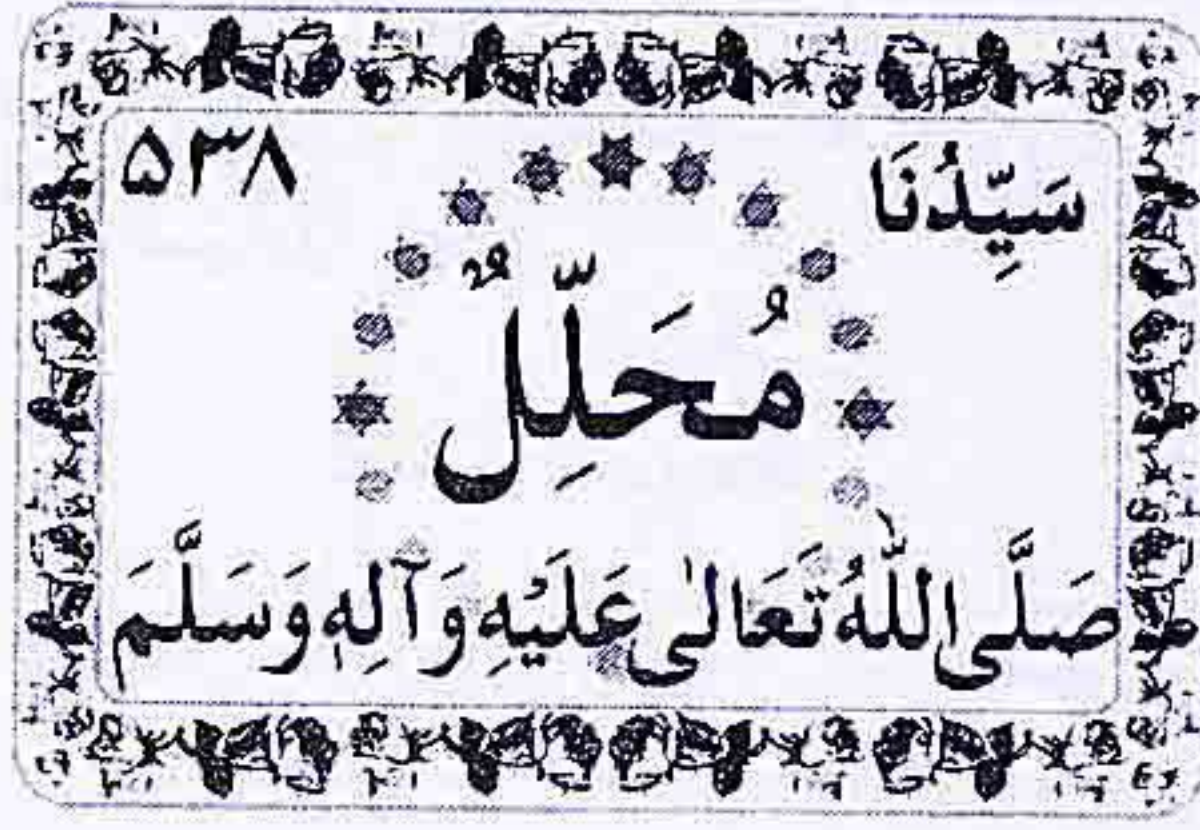 سَيِّدُنَا ۵۳۸
مُحَلِّلٌ
صَلَّى اللّٰهُ تَعَالٰى عَلَيْهِ وَآلِهٖ وَسَلَّمَ